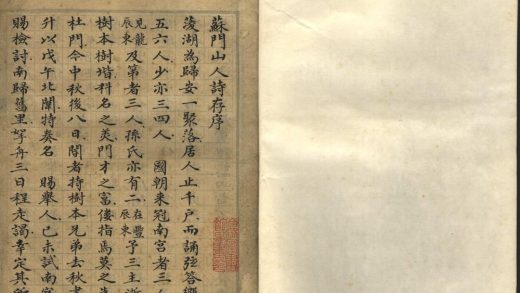 蘇門山人詩存序
菱湖為歸安一聚落居人止千戶而誦弦答
五六人少亦三四人 國朝来冠南宮者三人
見龍辰東及第者三人孫氏亦有二在豐辰東予三主
樹本樹堦科名之美門才之富僂指焉莫之
杜門今中秋後八日閽者持樹本兄弟去秋書
升以戊午北闈特奏名 賜舉人已未試南宮
賜檢討南歸舊里拏舟三日程走謁幸定其所